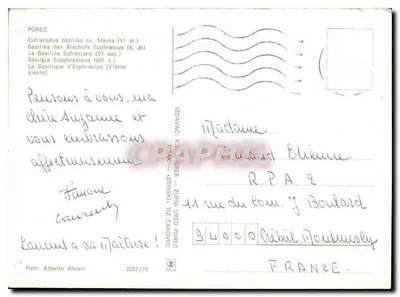 POREC
Eufrazijeva bazilika sv. Maura (VI st.)
Basilika des Bischofs Euphrasius (6. Jh.)
La Basilica Eufrasiana (VI sec.)
Basilica Euphrasiana (6th c.)
La Basilique d'Euphrasius (VIème
siècle)
Pensons à vous, ma
chère Suzanne et
vous embrassons
affectueusement
Simone
Laurent
Laurent a sa Maîtrise !
Foto: Alberto Abram 2253/78
ZUPNI URED POREC
TIZ ČAKOVEC
Madame
Etienne
R.P.A. 2
11 rue du Com. J Boulard
94000 Créteil
FRANCE